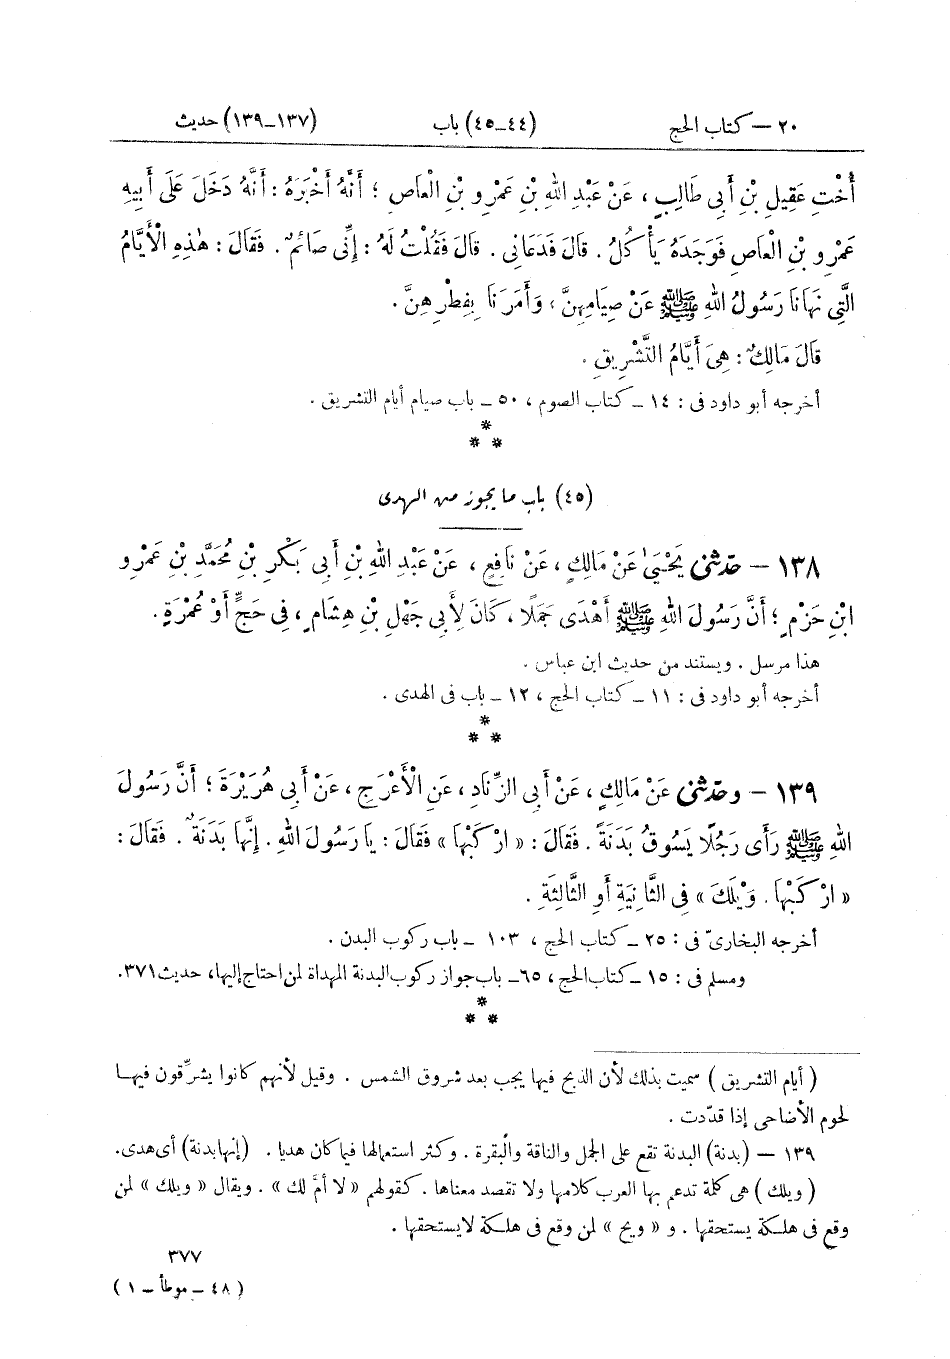 ٢٠ – كتاب الحج (٤٤–٤٥) باب (١٣٧–١٣٩) حديث
أُخْتِ عَقِيلِ بْنِ أَبِي طَالِبٍ ، عَنْ عَبْدِ اللهِ بْنِ عَمْرِو بْنِ الْعَاصِ ؛ أَنَّهُ أَخْبَرَهُ : أَنَّهُ دَخَلَ عَلَى أَبِيهِ
عَمْرِو بْنِ الْعَاصِ فَوَجَدَهُ يَأْكُلُ . قَالَ فَدَعَانِي . قَالَ فَقُلْتُ لَهُ : إِنِّي صَائِمٌ . فَقَالَ : هٰذِهِ الْأَيَّامُ
الَّتِي نَهَانَا رَسُولُ اللهِ ﷺ عَنْ صِيَامِهِنَّ ، وَأَمَرَنَا بِفِطْرِهِنَّ .
قَالَ مَالِكٌ : هِيَ أَيَّامُ التَّشْرِيقِ .
أخرجه أبو داود فى : ١٤ – كتاب الصوم ، ٥٠ – باب صيام أيام التشريق .
*
* *
(٤٥) باب ما يجوز من الهدى
١٣٨ – حدثنى يَحْيَىٰ عَنْ مَالِكٍ ، عَنْ نَافِعٍ ، عَنْ عَبْدِ اللهِ بْنِ أَبِي بَكْرِ بْنِ مُحَمَّدِ بْنِ عَمْرِو
ابْنِ حَزْمٍ ؛ أَنَّ رَسُولَ اللهِ ﷺ أَهْدَى جَمَلًا ، كَانَ لِأَبِي جَهْلِ بْنِ هِشَامٍ ، فِي حَجٍّ أَوْ عُمْرَةٍ .
هذا مرسل . ويستند من حديث ابن عباس .
أخرجه أبو داود فى : ١١ – كتاب الحج ، ١٢ – باب فى الهدى .
*
* *
١٣٩ – وحدثنى عَنْ مَالِكٍ ، عَنْ أَبِي الزِّنَادِ ، عَنِ الْأَعْرَجِ ، عَنْ أَبِي هُرَيْرَةَ ؛ أَنَّ رَسُولَ
اللهِ ﷺ رَأَى رَجُلًا يَسُوقُ بَدَنَةً . فَقَالَ : « ارْكَبْهَا » فَقَالَ : يَا رَسُولَ اللهِ . إِنَّهَا بَدَنَةٌ . فَقَالَ :
« ارْكَبْهَا . وَيْلَكَ » فِي الثَّانِيَةِ أَوِ الثَّالِثَةِ .
أخرجه البخارىّ فى : ٢٥ – كتاب الحج ، ١٠٣ – باب ركوب البدن .
ومسلم فى : ١٥ – كتاب الحج ، ٦٥ – باب جواز ركوب البدنة المهداة لمن احتاج إليها ، حديث ٣٧١.
*
* *
( أيام التشريق ) سميت بذلك لأن الذبح فيها يجب بعد شروق الشمس . وقيل لأنهم كانوا يشرِّقون فيها
لحوم الأضاحى إذا قدّدت .
١٣٩ – (بدنة) البدنة تقع على الجمل والناقة والبقرة . وكثر استعمالها فيما كان هديا . (إنها بدنة) أى هدى.
( ويلك ) هى كلمة تدعم بها العرب كلامها ولا تقصد معناها . كقولهم « لا أمّ لك » . ويقال « ويلك » لمن
وقع فى هلكة يستحقها . و « ويح » لمن وقع فى هلكة لا يستحقها .
٣٧٧
( ٤٨ – موطأ – ١ )